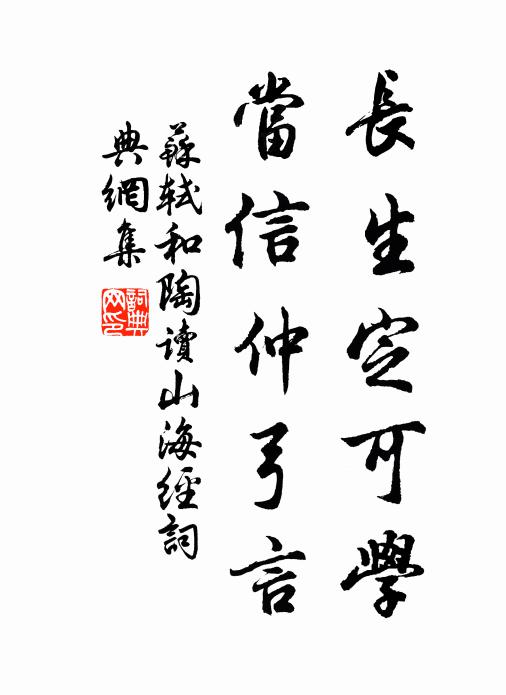 長生定可學
當信仲弓言
蘇軾和陶讀山海經詞
典網集
詞典
网印